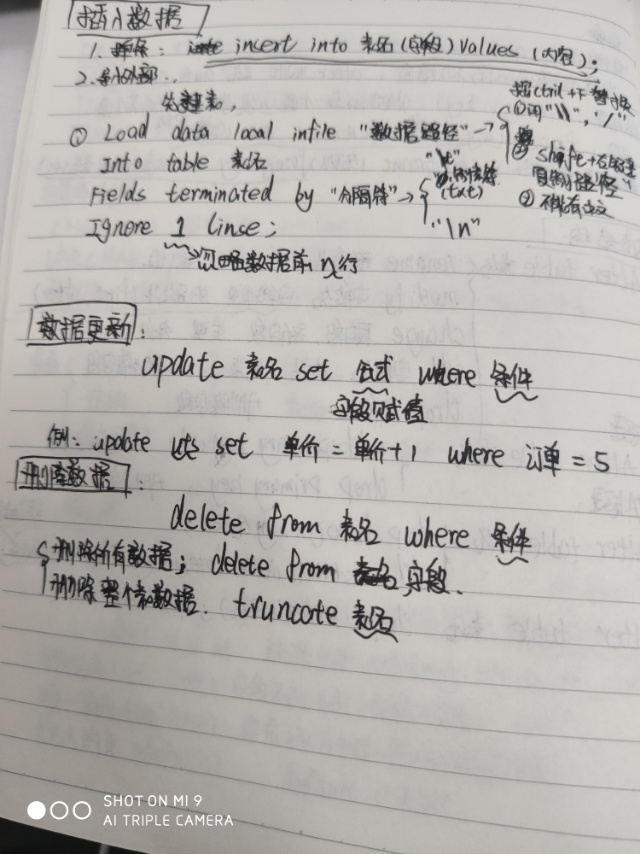 插入数据
1. : insert into 表名(字段) values (内容);
2. 导外部..
先建表,
① Load data local infile "数据路径" →
按ctrl+F 替换
①用"\\", "/"
② shift+右键
复制路径
③ 不能有中文
Into table 表名
Fields terminated by "分隔符" →
"\t"
(txt)
"\n"
Ignore 1 linse;
→忽略数据前n行
数据更新:
update 表名 set 公式 where 条件
字段赋值
例: update set 单价 = 单价+1 where 订单 = 5
删除数据:
delete from 表名 where 条件
删除所有数据; delete from 字段.
删除整个表数据. truncote 表名
SHOT ON MI 9
AI TRIPLE CAMERA